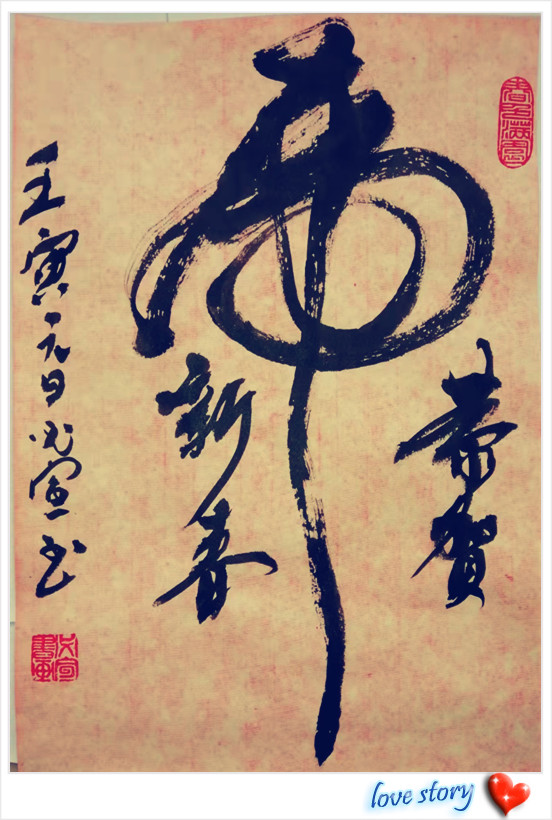 虎
恭贺
新春
壬寅元日
宣书
love story